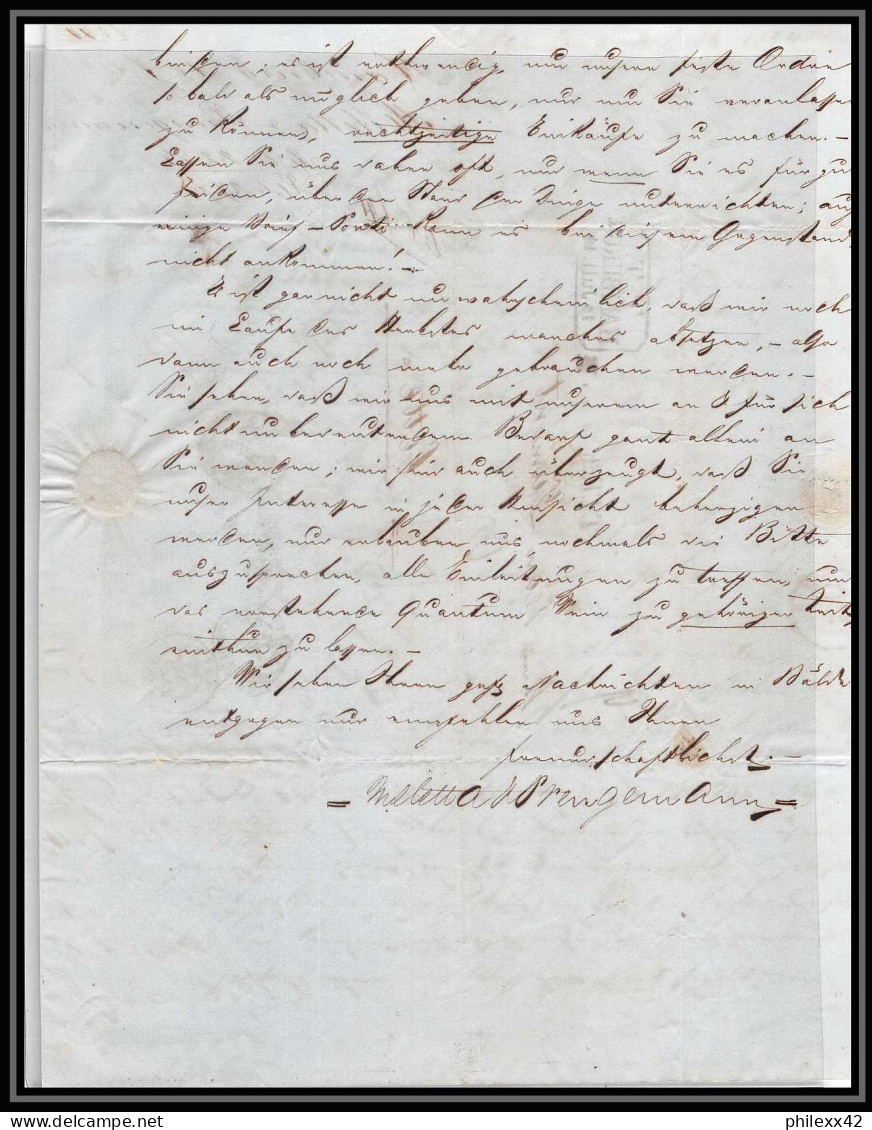 es ist nothwendig, unsere feste Ordre
so bald als möglich geben, um Sie veranlassen
zu können, rechtzeitige Einkäufe zu machen.-
Lassen Sie uns daher oft, nur wenn Sie es für gut
finden, über den Stand der Dinge unterrichten; auf
einige Brief-Porti kann es bei diesem Gegenstand
nicht ankommen! -
Es ist gar nicht unwahrscheinlich, daß wir noch
im Laufe des Herbstes manches absetzen, - also
dann auch noch mehr gebrauchen werden. -
Sie sehen, daß wir uns mit unserem an & für sich
nicht unbedeutenden Bedarf ganz allein an
Sie wenden; wir sind auch überzeugt, daß Sie
unser Interesse in jeder Hinsicht beherzigen
werden, und erlauben uns, nochmals die Bitte
auszusprechen, alle Einleitungen zu treffen, um
das vorstehende Quantum zu gehöriger Zeit
zu lassen. -
Wir sehen Ihren gefl. Nachrichten in Bälde
entgegen und empfehlen uns Ihnen
freundschaftlichst. -
= Meletta & Prengemann =
philexx42